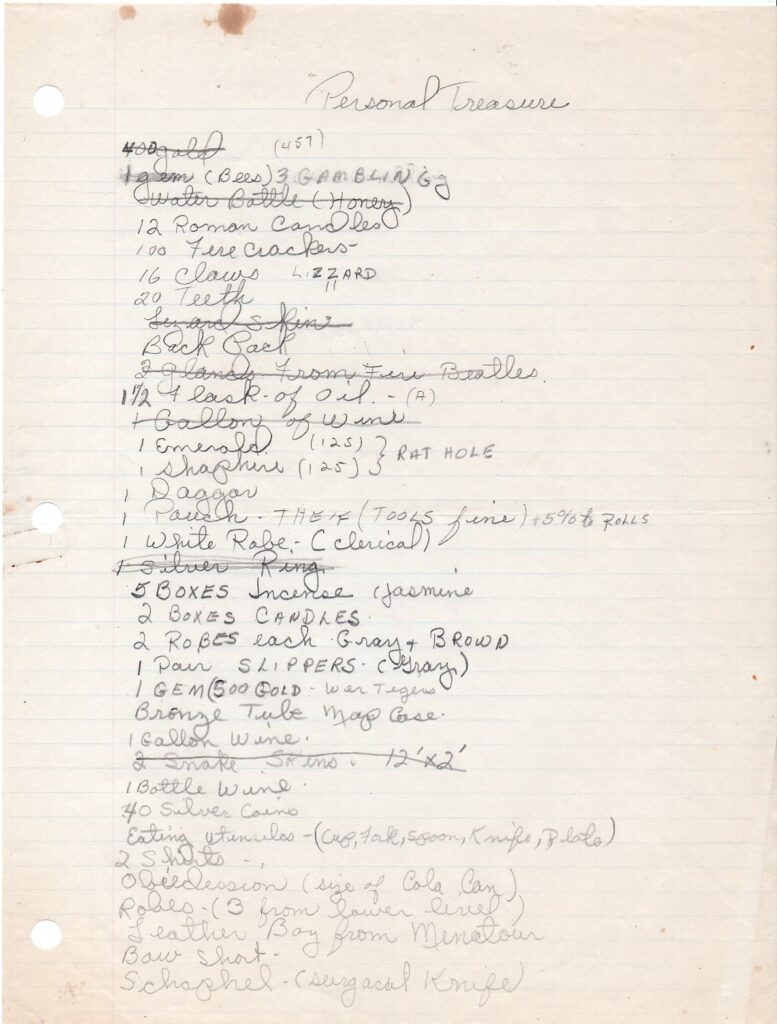 Personal Treasure
400 gold (457)
1 gem (Bees) 3 GAMBLING g
Water Bottle (Honey)
12 Roman Candles
100 Firecrackers-
16 Claws LIZZARD
20 Teeth "
Lizard Skins
Back Pack
2 glands From Fire Beatles
1 1/2 Flask of Oil. - (A)
1 Gallon of Wine
1 Emerald (125) } RAT HOLE
1 Shaphire (125) }
1 Daggar
1 Pouch - THEIF (TOOLS fine) +5% to ROLLS
1 White Robe - (clerical)
1 Silver Ring
5 BOXES Incense Jasmine
2 BOXES CANDLES.
2 ROBES each Gray + BROWN
1 Pair SLIPPERS. (Gray)
1 GEM (500 GOLD - Wer Tegers
Bronze Tube Map Case.
1 Gallon Wine.
2 Snake Skins. 12'x2'
1 Bottle Wine.
40 Silver Coins
Eating Utensiles - (Cup, Fork, Spoon, Knife, Plate)
2 Shirts -
(size of Cola Can)
Robes - (3 from lower level)
Leather Bag from Menatour
Bow Short -
Schaphel - (surgacal Knife)